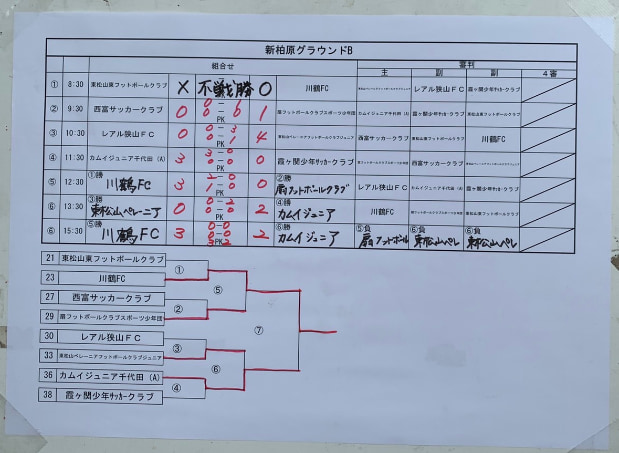 新柏原グラウンドB
組合せ 審判
主 副 副 4審
① 8:30 東松山東フットボールクラブ × 不戦勝 0 川鶴FC レアル狭山FC 霞ヶ関少年サッカークラブ
② 9:30 西富サッカークラブ 0 0-6 1 扇フットボールクラブスポーツ少年団 カムイジュニア千代田(A) 霞ヶ関少年サッカークラブ 東松山東フットボールクラブ
PK
③ 10:30 レアル狭山FC 0 0-3 4 東松山ペレーニアフットボールクラブジュニア 西富サッカークラブ 東松山東フットボールクラブ 川鶴FC
0-1
PK
④ 11:30 カムイジュニア千代田(A) 3 3-0 0 霞ヶ関少年サッカークラブ 西富サッカークラブ
0-0
PK
⑤ 12:30 ①勝 川鶴FC 3 2-0 0 ②勝 扇フットボールクラブ レアル狭山FC カムイジュニア千代田(A) 霞ヶ関少年サッカークラブ
1-0
PK
⑥ 13:30 ③勝 東松山ペレーニア 0 0-2 2 ④勝 カムイジュニア 川鶴FC 扇フットボールクラブスポーツ少年団 東松山東フットボールクラブ
0-0
PK
⑥ 15:30 ⑤勝 川鶴FC 3 0-0 2 ⑥勝 カムイジュニア ⑤負 扇フットボール ⑥負 東松山ペレ ⑥負 東松山ペレ
0-0
3PK2
21 東松山東フットボールクラブ
①
23 川鶴FC
⑤
27 西富サッカークラブ
②
29 扇フットボールクラブスポーツ少年団
⑦
30 レアル狭山FC
③
33 東松山ペレーニアフットボールクラブジュニア
⑥
36 カムイジュニア千代田(A)
④
38 霞ヶ関少年サッカークラブ